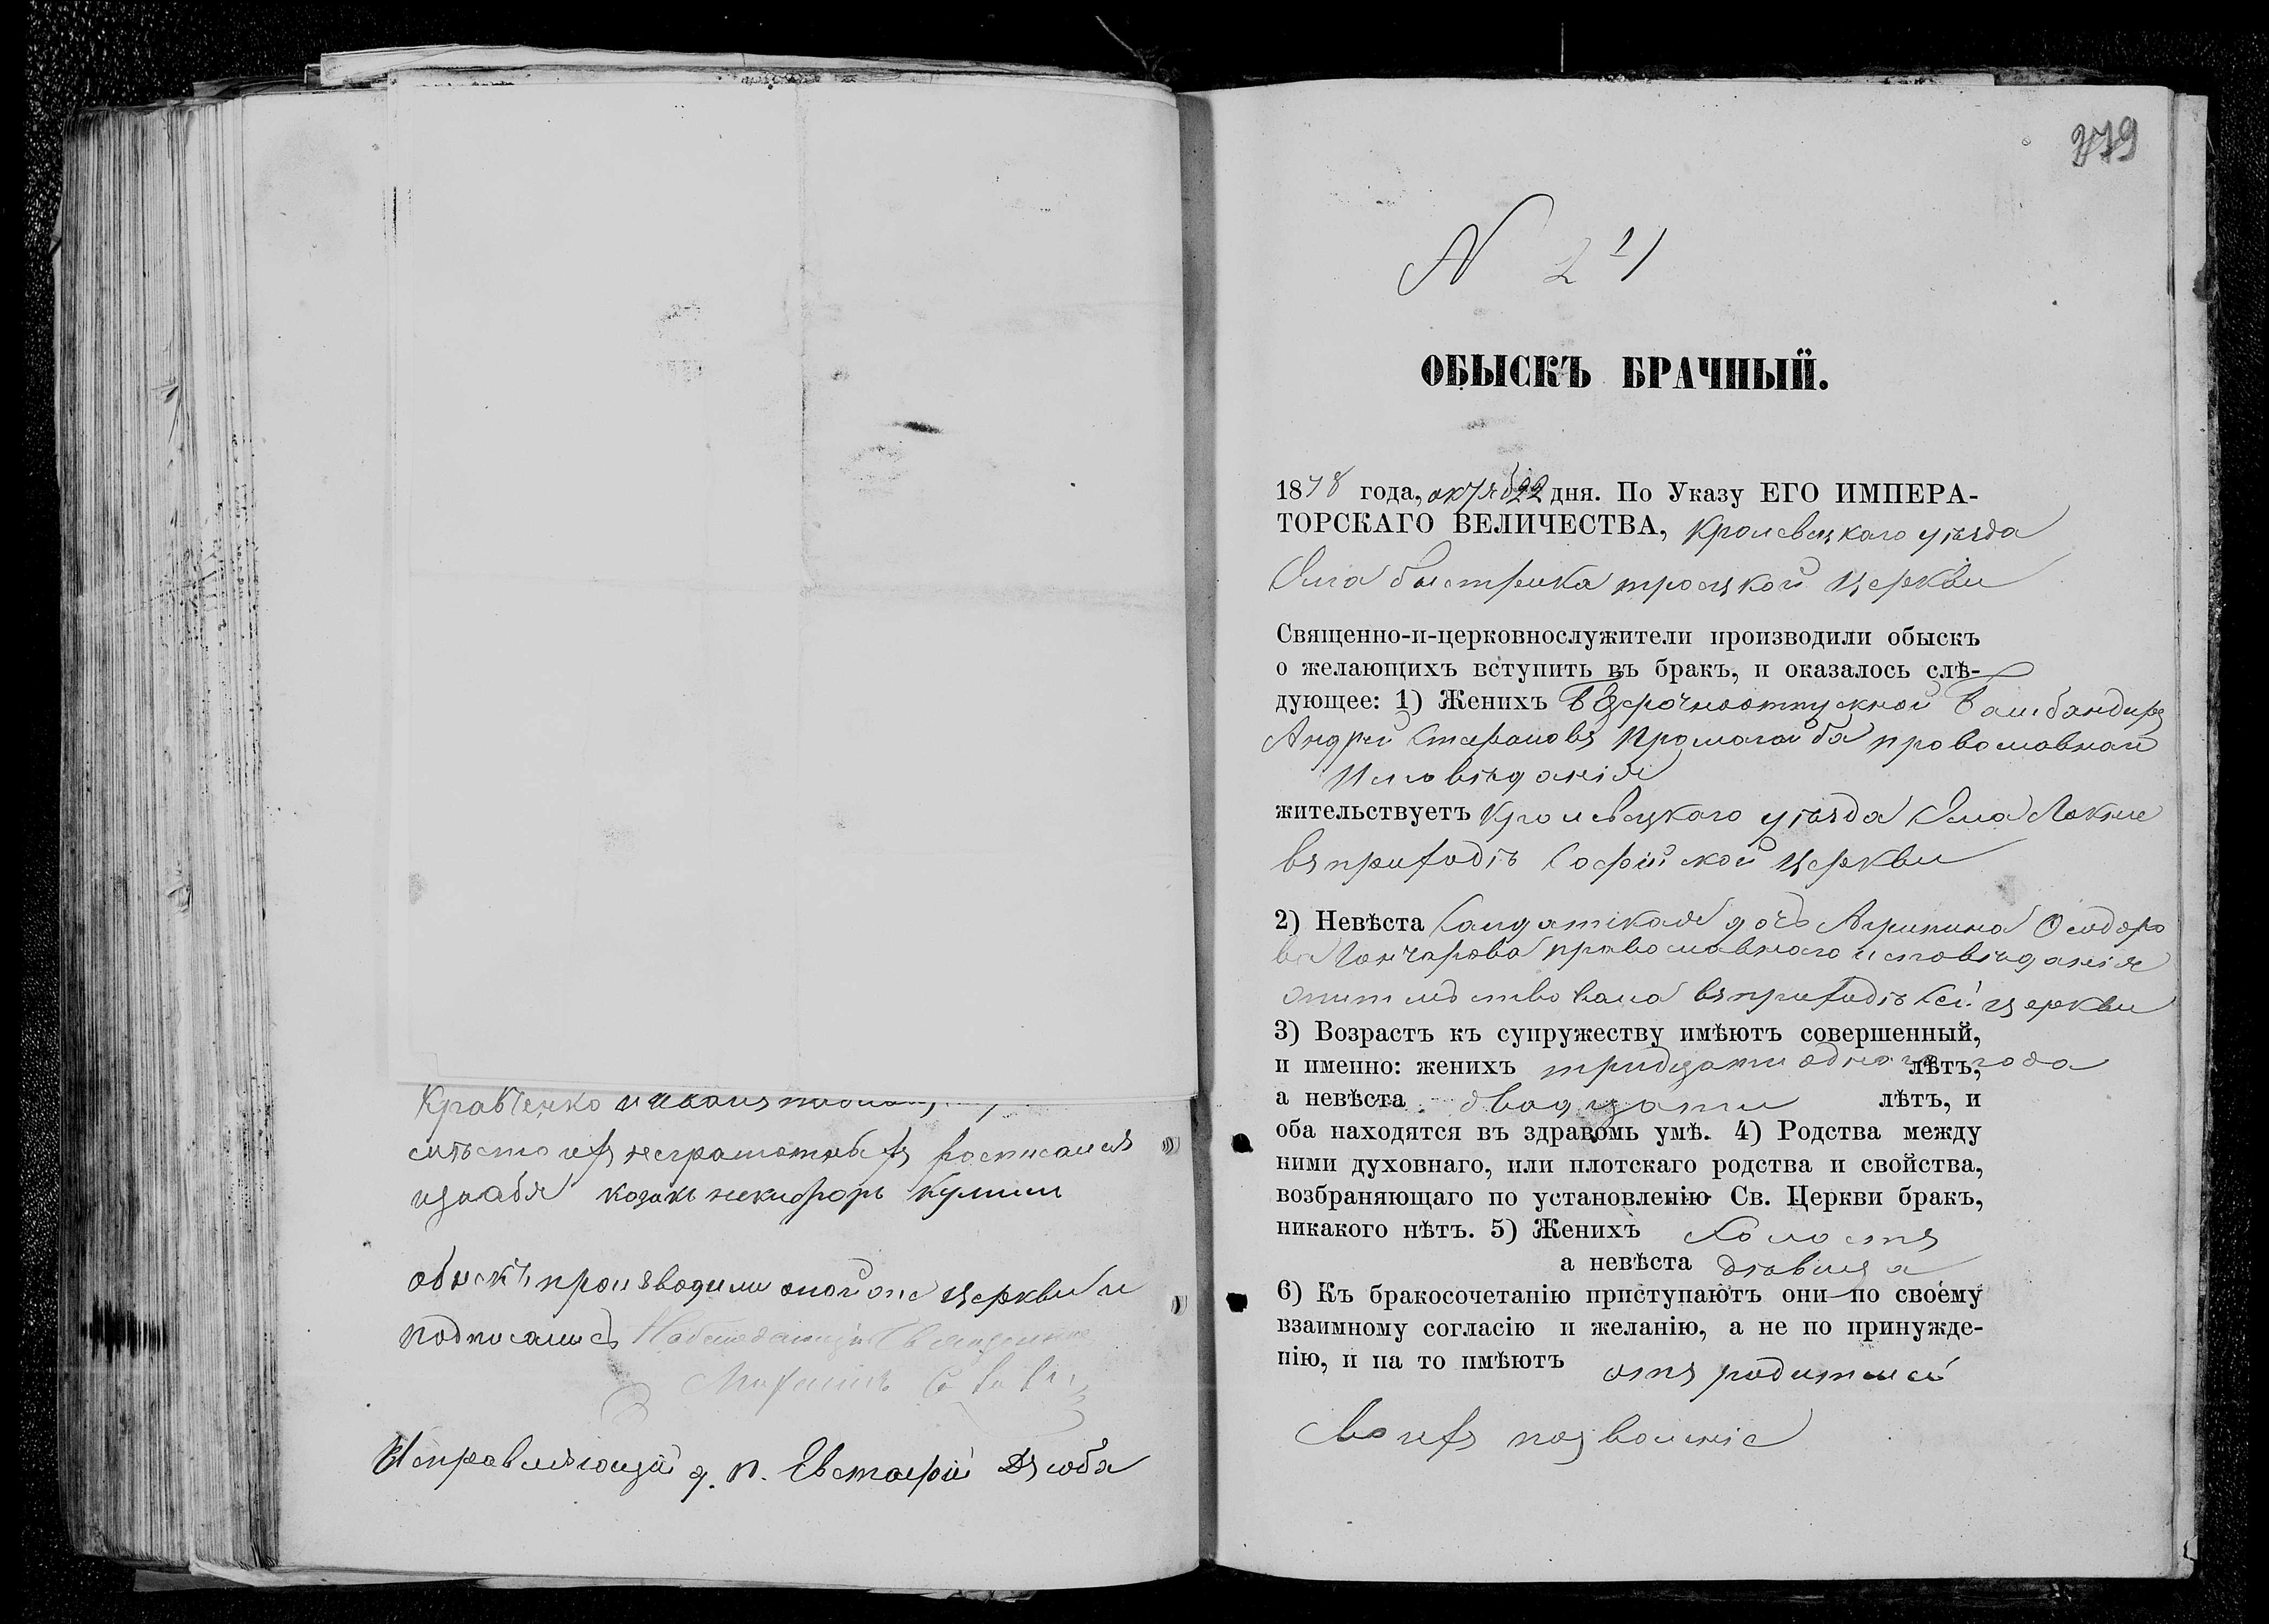 Кравченко
вмѣсто ихъ неграмотныхъ росписался
козакъ никифоръ Кулиш
обыскъ производили оной церкви и
подписались Наблюдающий Священникъ
Исправляющій д. п. Евстафій Дзюба
279
N 21
ОБЫСКЪ БРАЧНЫЙ.
1878 года, октяб 22 дня. По Указу ЕГО ИМПЕРА-
ТОРСКАГО ВЕЛИЧЕСТВА, Кролевецкаго уѣзда
Села быстрика троецкой церкви
Священно-и-церковнослужители производили обыскъ
о желающихъ вступить въ бракъ, и оказалось слѣ-
дующее: 1) Женихъ безсрочноотпускной
Андрей Стефановъ православнаго
Исповѣданія
жительствуетъ Кролевецкаго уѣзда Села Локне
въ приходѣ Софійской церкви
2) Невѣста Солдатская дочь Агрипина Феодоро
ва Гончарова православнаго исповѣданія
жительствовала въ приходѣ сей церкви
3) Возрастъ къ супружеству имѣютъ совершенный,
и именно: женихъ тридцати одного года лѣтъ,
а невѣста двадцати лѣтъ, и
оба находятся въ здравомъ умѣ. 4) Родства между
ними духовнаго, или плотскаго родства и свойства,
возбраняющаго по установленію Св. Церкви бракъ,
никакого нѣтъ. 5) Женихъ Холостъ
а невѣста дѣвица
6) Къ бракосочетанію приступаютъ они по своему
взаимному согласію и желанію, а не по принужде-
нію, и на то имѣютъ отъ родителей
своихъ позволеніе